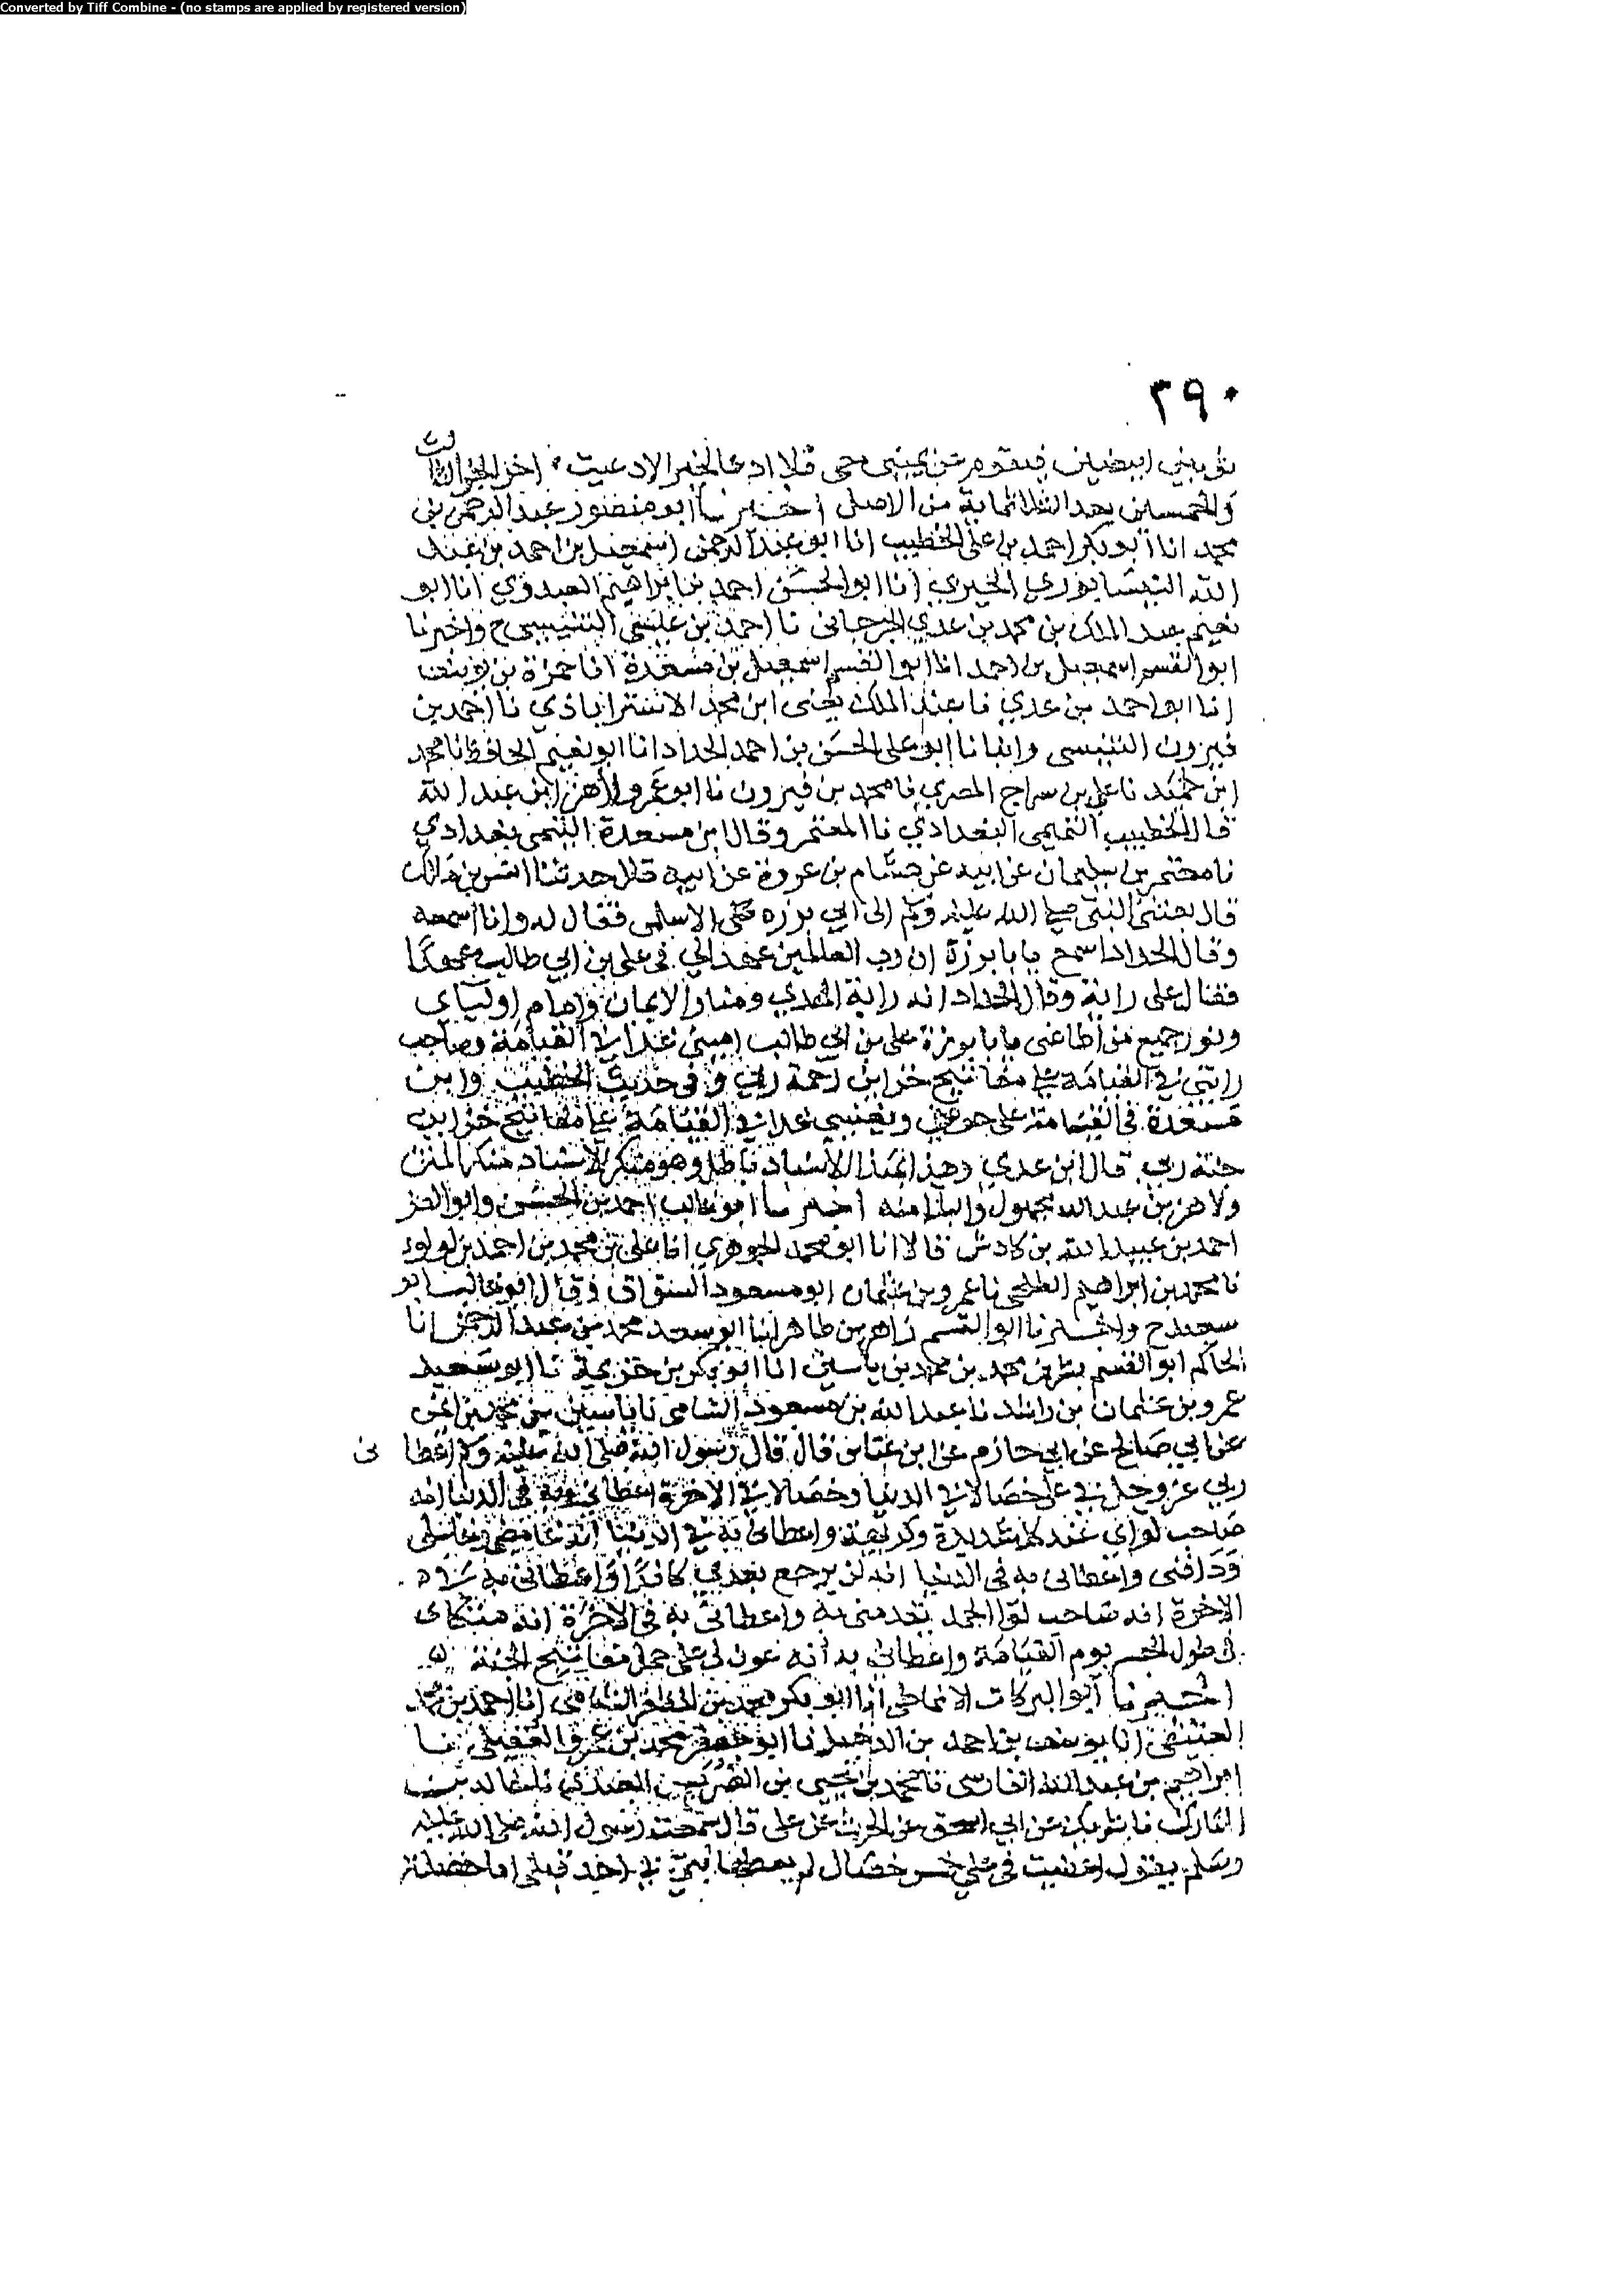 Converted by Tiff Combine - (no stamps are applied by registered version)
٣٩٠
فيقوم عن يميني حتى فلا ادعا لخير الا دعيت اخر الجزو الثالث
والخمسين بعد الثلاثماية من الاصل اخبرنا ابو منصور عبد الرحمن بن
محمد انا ابو بكر احمد بن علي الخطيب انا ابو عبد الرحمن اسمعيل بن احمد بن عبد
الله النيسابوري الحيري انا ابو الحسن احمد بن ابراهيم العبدوي انا ابو
نعيم عبد الملك بن محمد بن عدي الجرجاني نا احمد بن عيسي التنيسي ح واخبرنا
ابو القسم اسمعيل بن احمد انا ابو القسم اسمعيل بن مسعدة انا حمزة بن يوسف
انا ابو احمد بن عدي نا عبد الملك يعني ابن محمد الاستراباذي نا احمد بن
فيرون التنيسي وانبانا ابو علي الحسن بن احمد الحداد انا ابو نعيم الحافظ نا محمد
ابن حميد نا علي بن سراج المصري نا محمد بن فيرون نا ابو عمرو لاهز ابن عبد الله
قال الخطيب التميمي البغدادي نا المعتمر وقال ابن مسعدة التيمي بغدادي
نا معتمر بن سليمان عن ابيه عن هشام بن عروة عن ابيه قال حدثنا انس بن مالك
قال بعثني النبي صلى الله عليه وسلم الى ابي برزه الاسلمي فقال له وانا اسمعه
وقال الحداد اسمع يا با برزة ان رب العالمين عهد الي في علي بن ابي طالب عهدا
فقال علي راية وقال الحداد انه راية الهدي ومنار الايمان وامام اوليآي
ونور جميع من اطاعني يا با برزة علي بن ابي طالب اميني غدا في القيامة وصاحب
رايتي في القيامة علي مفاتيح خزاين رحمة ربي و في حديث الخطيب وابن
مسعدة في القيامة على حوضي ويعينني غدا في القيامة علي مفاتيح خزاين
جنة ربي قال ابن عدي وهذا بهذا الاسناد باطل وهو منكر الاسناد منكر المتن
ولاهز بن عبد الله مجهول والبلا منه اخبرنا ابو غالب احمد بن الحسن وابو العز
احمد بن عبيد الله بن كادش قالا انا ابو محمد الجوهري انا علي بن محمد بن احمد بن لولوء
نا محمد بن ابراهيم الطلحي نا عمرو بن عثمان ابو مسعود السواق وقال ابو غالب ابو
سعيد ح واخبرنا ابو القسم زاهر بن طاهر انبا ابو سعد محمد بن عبد الرحمن انا
الحاكم ابو القسم بشر بن محمد بن محمد بن ياسين انا ابو بكر بن خزيمة نا ابو سعيد
عمرو بن عثمان بن راشد نا عبد الله بن مسعود الشامي نا ياسين بن محمد بن ايمن
عن ابي صالح عن ابي حازم عن ابن عباس قال قال رسول الله صلى الله عليه وسلم اعطاني
ربي عز وجل في علي خصالا في الدنيا وخصالا في الاخرة اعطاني به في الدنيا انه
صاحب لواي عند كل شديدة وكريهة واعطاني به في الدنيا انه غامضي وغاسلي
ودافني واعطاني به في الدنيا انه لن يرجع بعدي كافرا واعطاني به في
الاخرة انه صاحب لوا الحمد يقدمني به واعطاني به في الاخرة انه متكاي
في طول الحسر يوم القيامة واعطاني به انه عون لي على حمل مفاتيح الجنة
اخبرنا ابو البركات الانماطي انا ابو بكر محمد بن المظفر الشامي انا احمد بن محمد
العتيقي انا يوسف بن احمد بن الدخيل نا ابو جعفر محمد بن عمرو العقيلي نا
ابراهيم بن عبد الله الفارسي نا محمد بن يحيي بن الضريس العبدي نا خالد بن
المبارك نا شريك عن ابي اسحق عن الحرث عن علي قال سمعت رسول الله صلى الله عليه
وسلم يقول اعطيت في علي خمس خصال لم يعطها نبي في احد قبلي اما خصلة